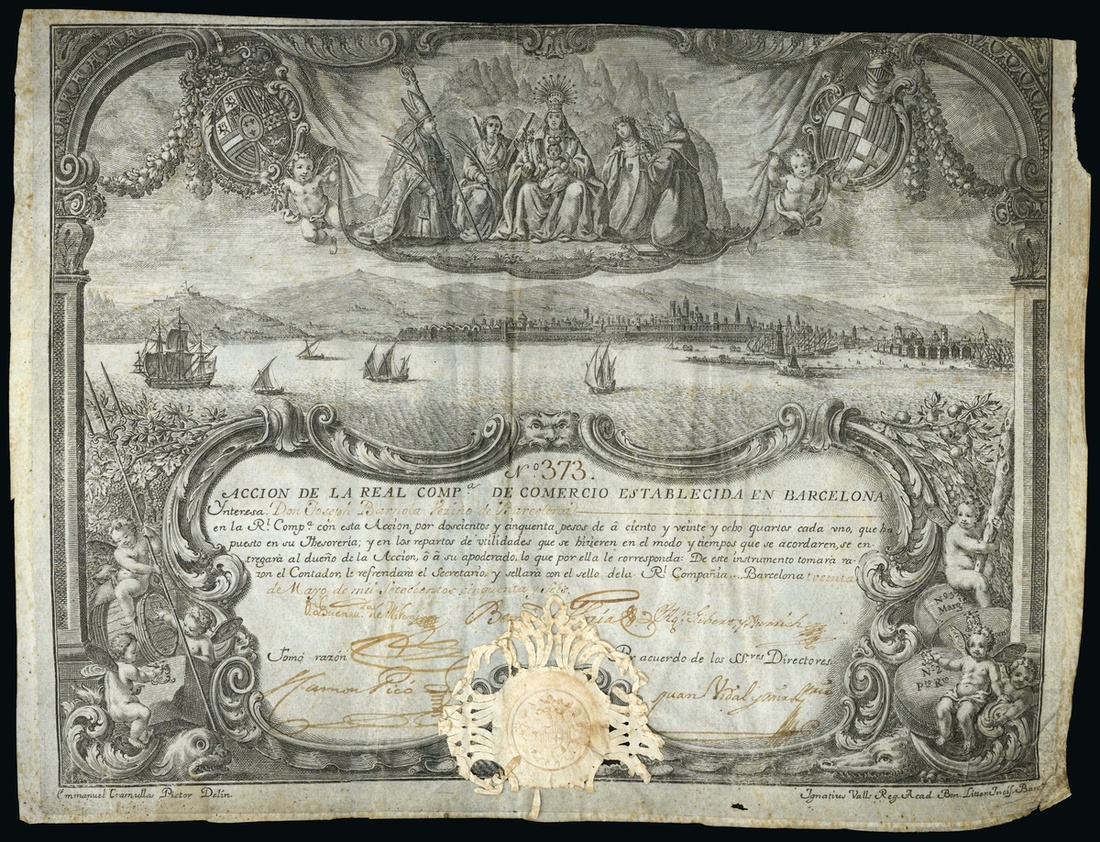 Nº 373.
ACCION DE LA REAL COMPª DE COMERCIO ESTABLECIDA EN BARCELONA
Ynteresa Don Joseph vezino de Barcelona
en la Rˡ Compª con esta Accion, por doscientos y cinquenta pesos de á ciento y veinte y ocho quartos cada vno, que ha
puesto en su Thesoreria; y en los repartos de vtilidades que se hizieren en el modo y tiempos que se acordaren, se en-
tregará al dueño de la Accion, ô â su apoderado, lo que por ella le corresponda: De este instrumento tomará ra-
zon el Contador, le refrendara el Secretario, y sellará con el sello dela Rˡ Compañia. Barcelona treinta
de Mayo de mil setecientos cinquenta y seis.
Tomó razón Por acuerdo de los SSʳᵉˢ Directores.
Ramon Picó Juan Vidal y Mir
Nº
Marg
Nº
Pᵗᵒ Rᶜᵒ
Emmanuel Tramulla Pictor Delin.
Ignatius Valls Reg. Acad. Bon. Litter. Incis. Barc